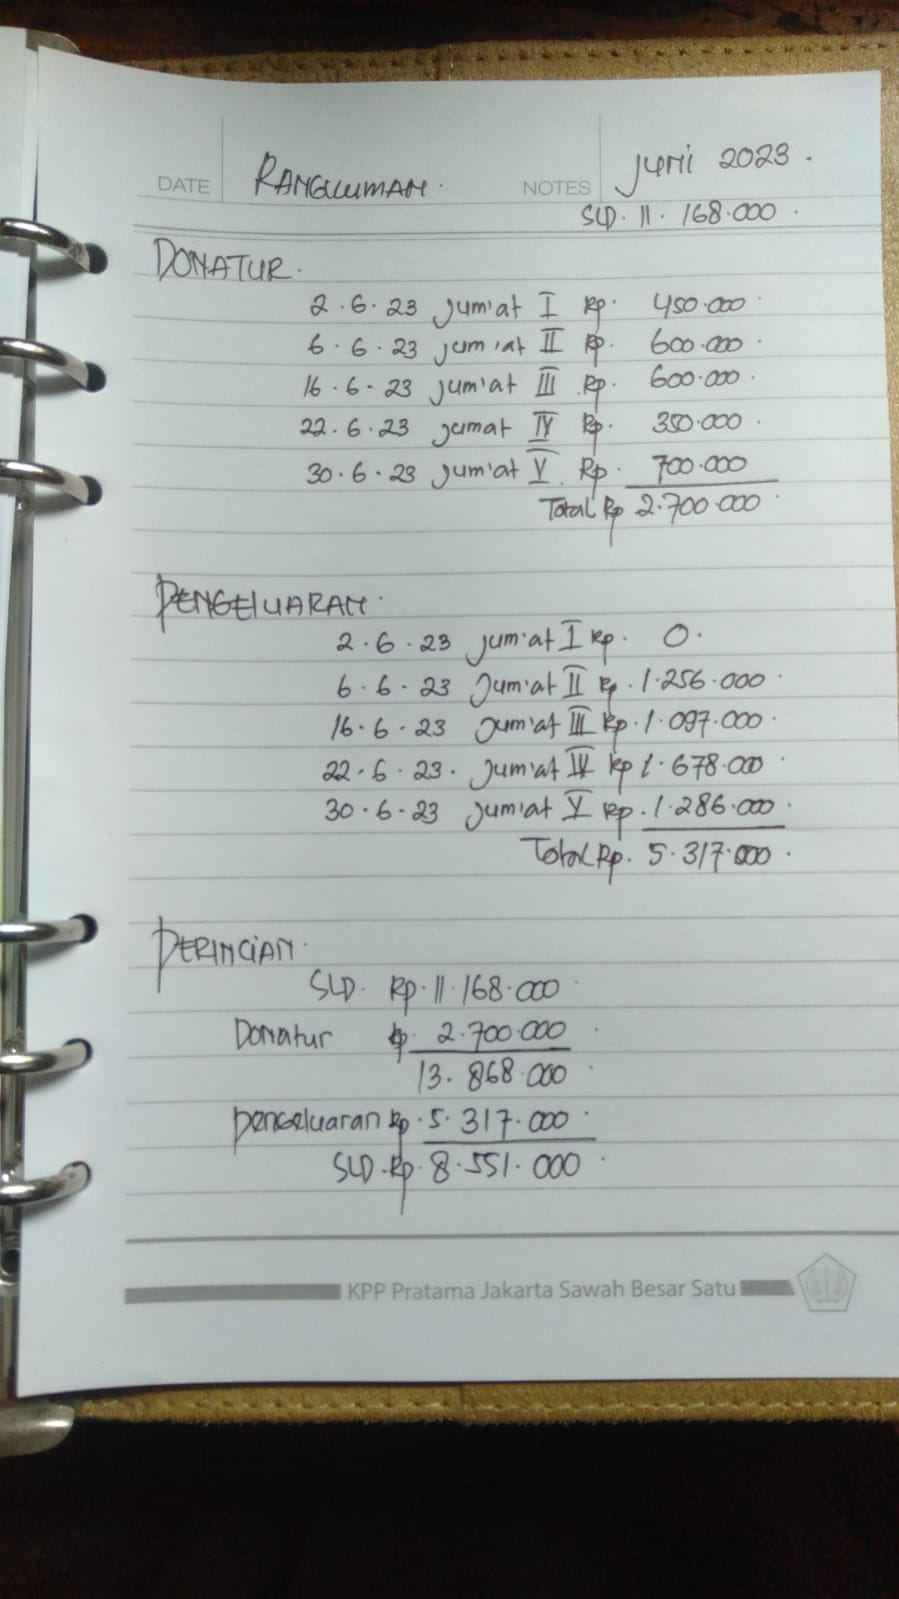 DATE RANGKUMAN. NOTES Juni 2023.
SLD. 11. 168.000.
DONATUR.
2.6.23 Jum'at I Rp. 450.000
6.6.23 Jum'at II Rp. 600.000.
16.6.23 Jum'at III Rp. 600.000.
22.6.23 Jumat IV Rp. 350.000.
30.6.23 Jum'at V. Rp. 700.000
Total Rp 2.700.000
PENGELUARAN.
2.6.23 Jum'at I Rp. 0.
6.6.23 Jum'at II Rp. 1.256.000
16.6.23 Jum'at III Rp. 1.097.000
22.6.23. Jum'at IV Rp 1.678.000
30.6.23 Jum'at V Rp. 1.286.000.
Total Rp. 5.317.000.
PERINCIAN.
SLD. Rp. 11.168.000
Donatur Rp. 2.700.000
13.868.000
Pengeluaran Rp. 5.317.000
SLD. Rp. 8.551.000
KPP Pratama Jakarta Sawah Besar Satu